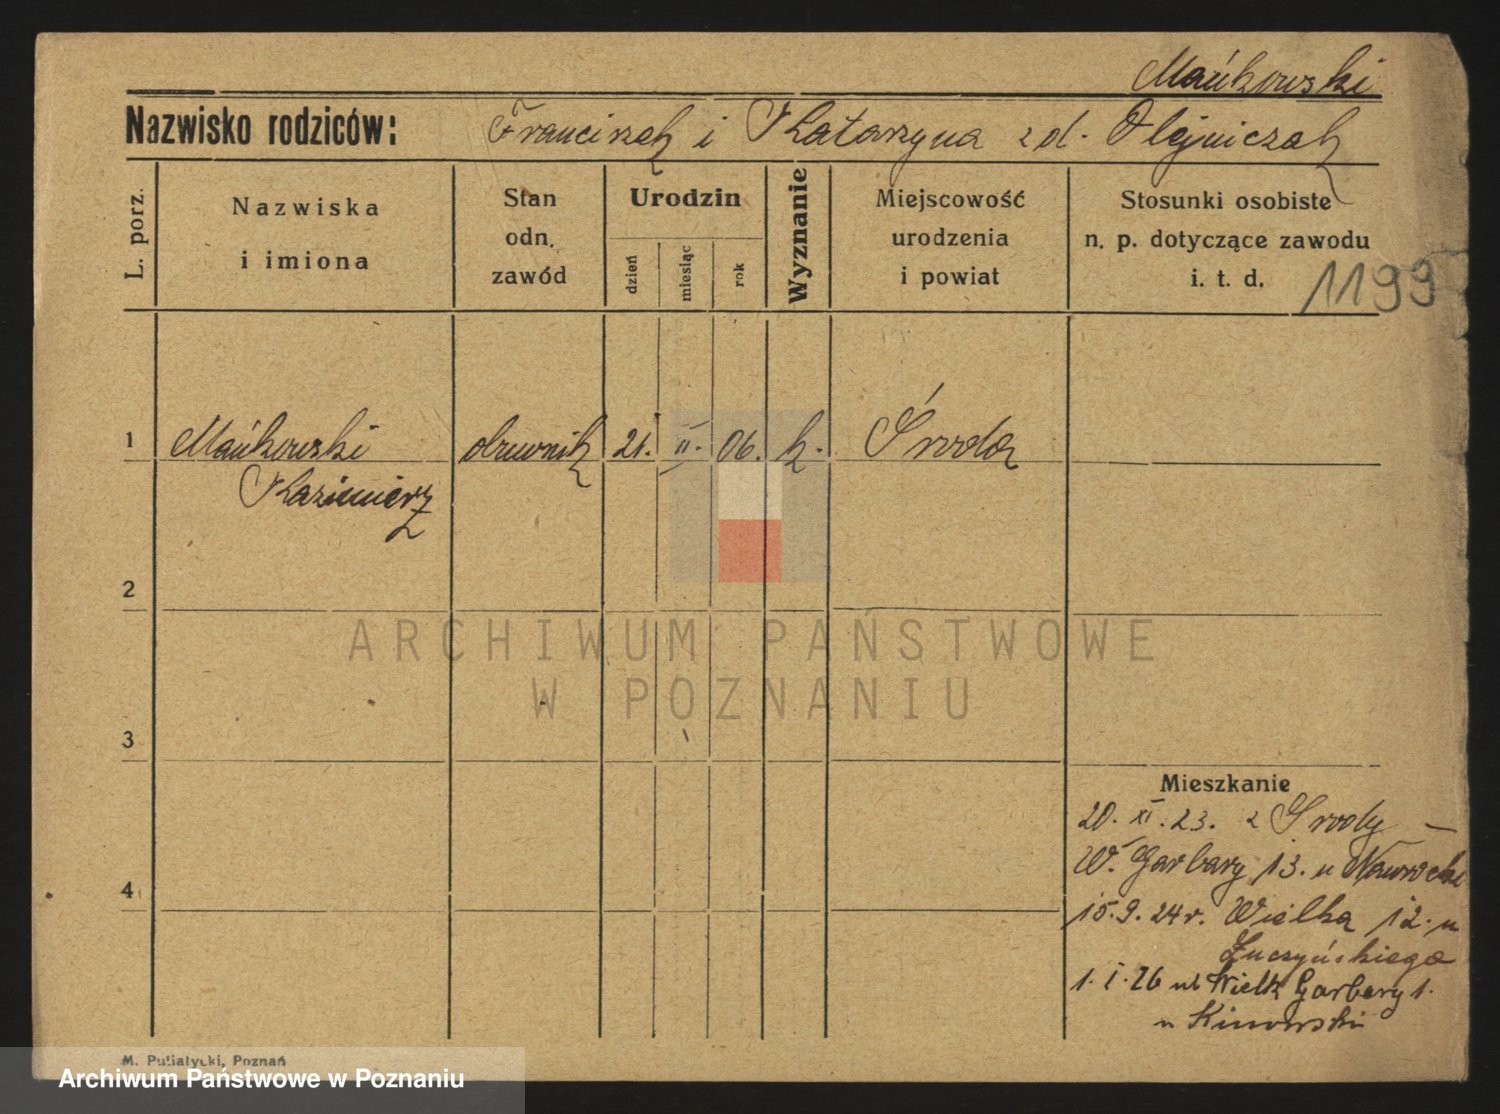 Mańkowski
Nazwisko rodziców: Franciszek i Katarzyna z d. Olejniczak
L. porz.
Nazwiska
i imiona
Stan
odn.
zawód
Urodzin
dzień
miesiąc
rok
Wyznanie
Miejscowość
urodzenia
i powiat
Stosunki osobiste
n. p. dotyczące zawodu
i. t. d.
1199
1 Mańkowski obuwnik 21. II. 06. k. Środa
Kazimierz
2
ARCHIWUM PAŃSTWOWE
W POZNANIU
3
Mieszkanie
20. XI. 23. z Środy —
W. Garbary 13. u Nawrocki
4
15. 9. 24 r. Wielka 12. u
Łuczyńskiego
1. I. 26 ul Wielk Garbary 1.
u
M. Putiatycki, Poznań
Archiwum Państwowe w Poznaniu